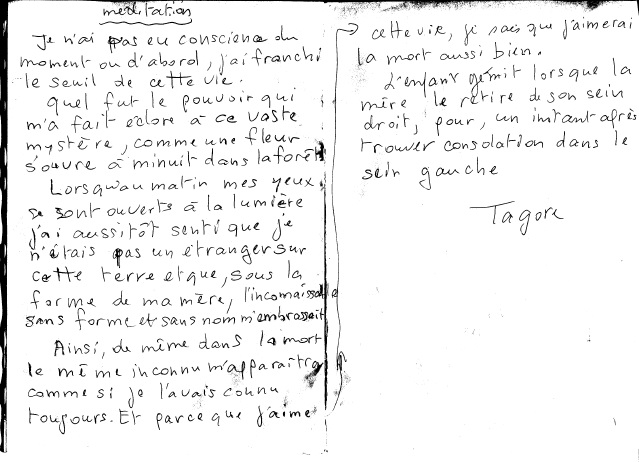 méditation
Je n'ai pas eu conscience du
moment ou d'abord, j'ai franchi
le seuil de cette vie.
Quel fut le pouvoir qui
m'a fait éclore à ce vaste
mystère, comme une fleur
s'ouvre à minuit dans la forêt
Lorsqu'au matin mes yeux
se sont ouverts à la lumière
j'ai aussitôt senti que je
n'étais pas un étranger sur
cette terre et que, sous la
forme de ma mère, l'inconnaissable
sans forme et sans nom m'embrassait
Ainsi, de même dans la mort
le même inconnu m'apparaîtra
comme si je l'avais connu
toujours. Et parce que j'aime
cette vie, je sais que j'aimerai
la mort aussi bien.
L'enfant gémit lorsque la
mère le retire de son sein
droit, pour, un instant après
trouver consolation dans le
sein gauche
Tagore